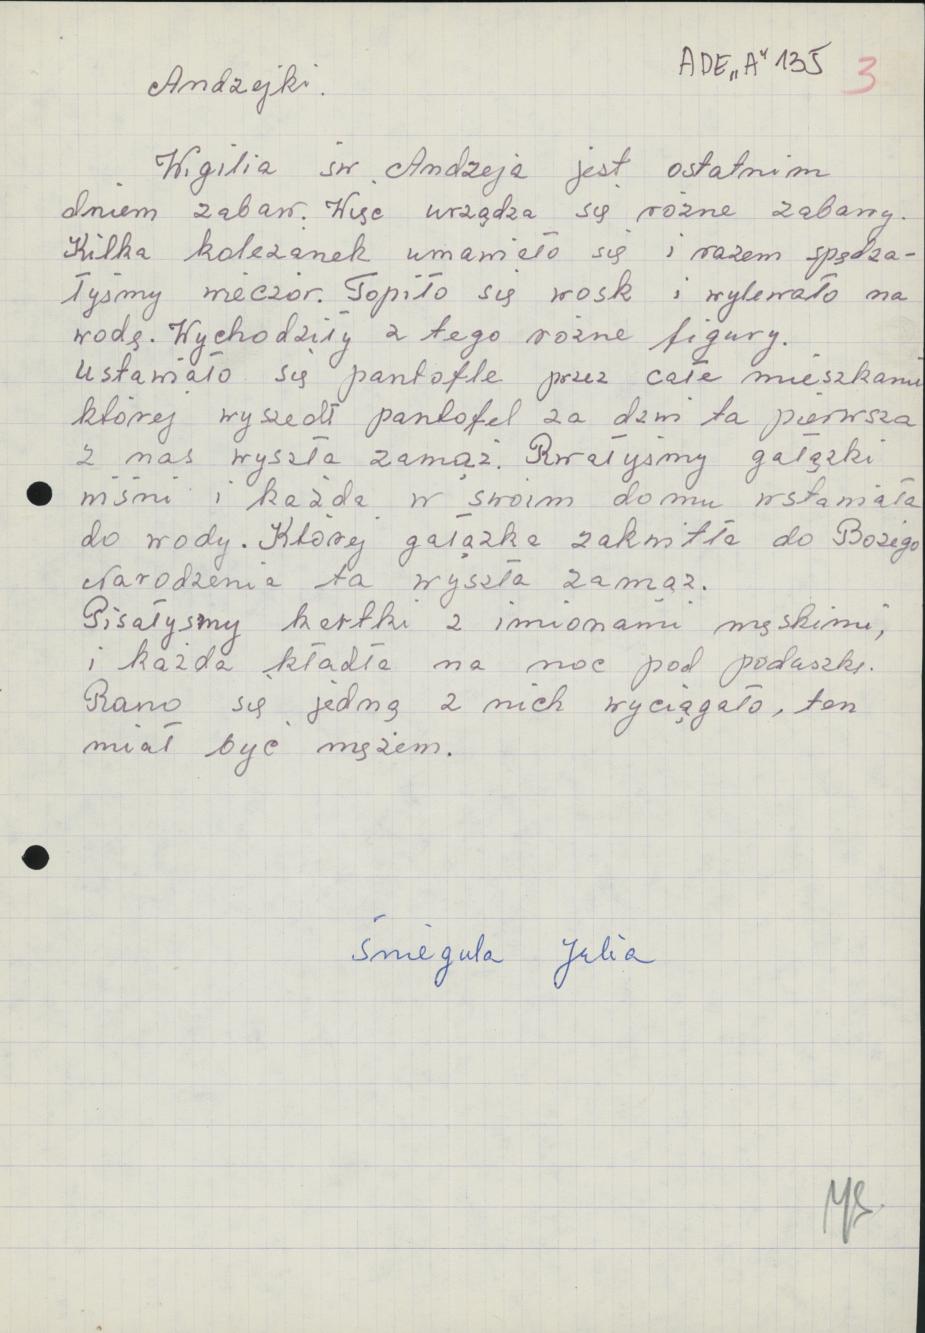 ADE „A" 135 3
Andzejki.
Wigilia św. Andzeja jest ostatnim
dniem zabaw. Więc urządza się różne zabawy.
Kilka koleżanek umawiało się i razem spędza-
łyśmy wieczór. Topiło się wosk i wylewało na
wodę. Wychodziły z tego różne figury.
Ustawiało się pantofle przez całe mieszkanie
której wyszedł pantofel za dzwi ta pierwsza
z nas wyszła zamąż. Rwałyśmy gałązki
wiśni i każda w swoim domu wstawiała
do wody. Której gałązka zakwitła do Bożego
Narodzenia ta wyszła zamąż.
Pisałyśmy kartki z imionami męskimi,
i każda kładła na noc pod poduszkę.
Rano się jedną z nich wyciągało, ten
miał być mężem.
Śniegula Julia